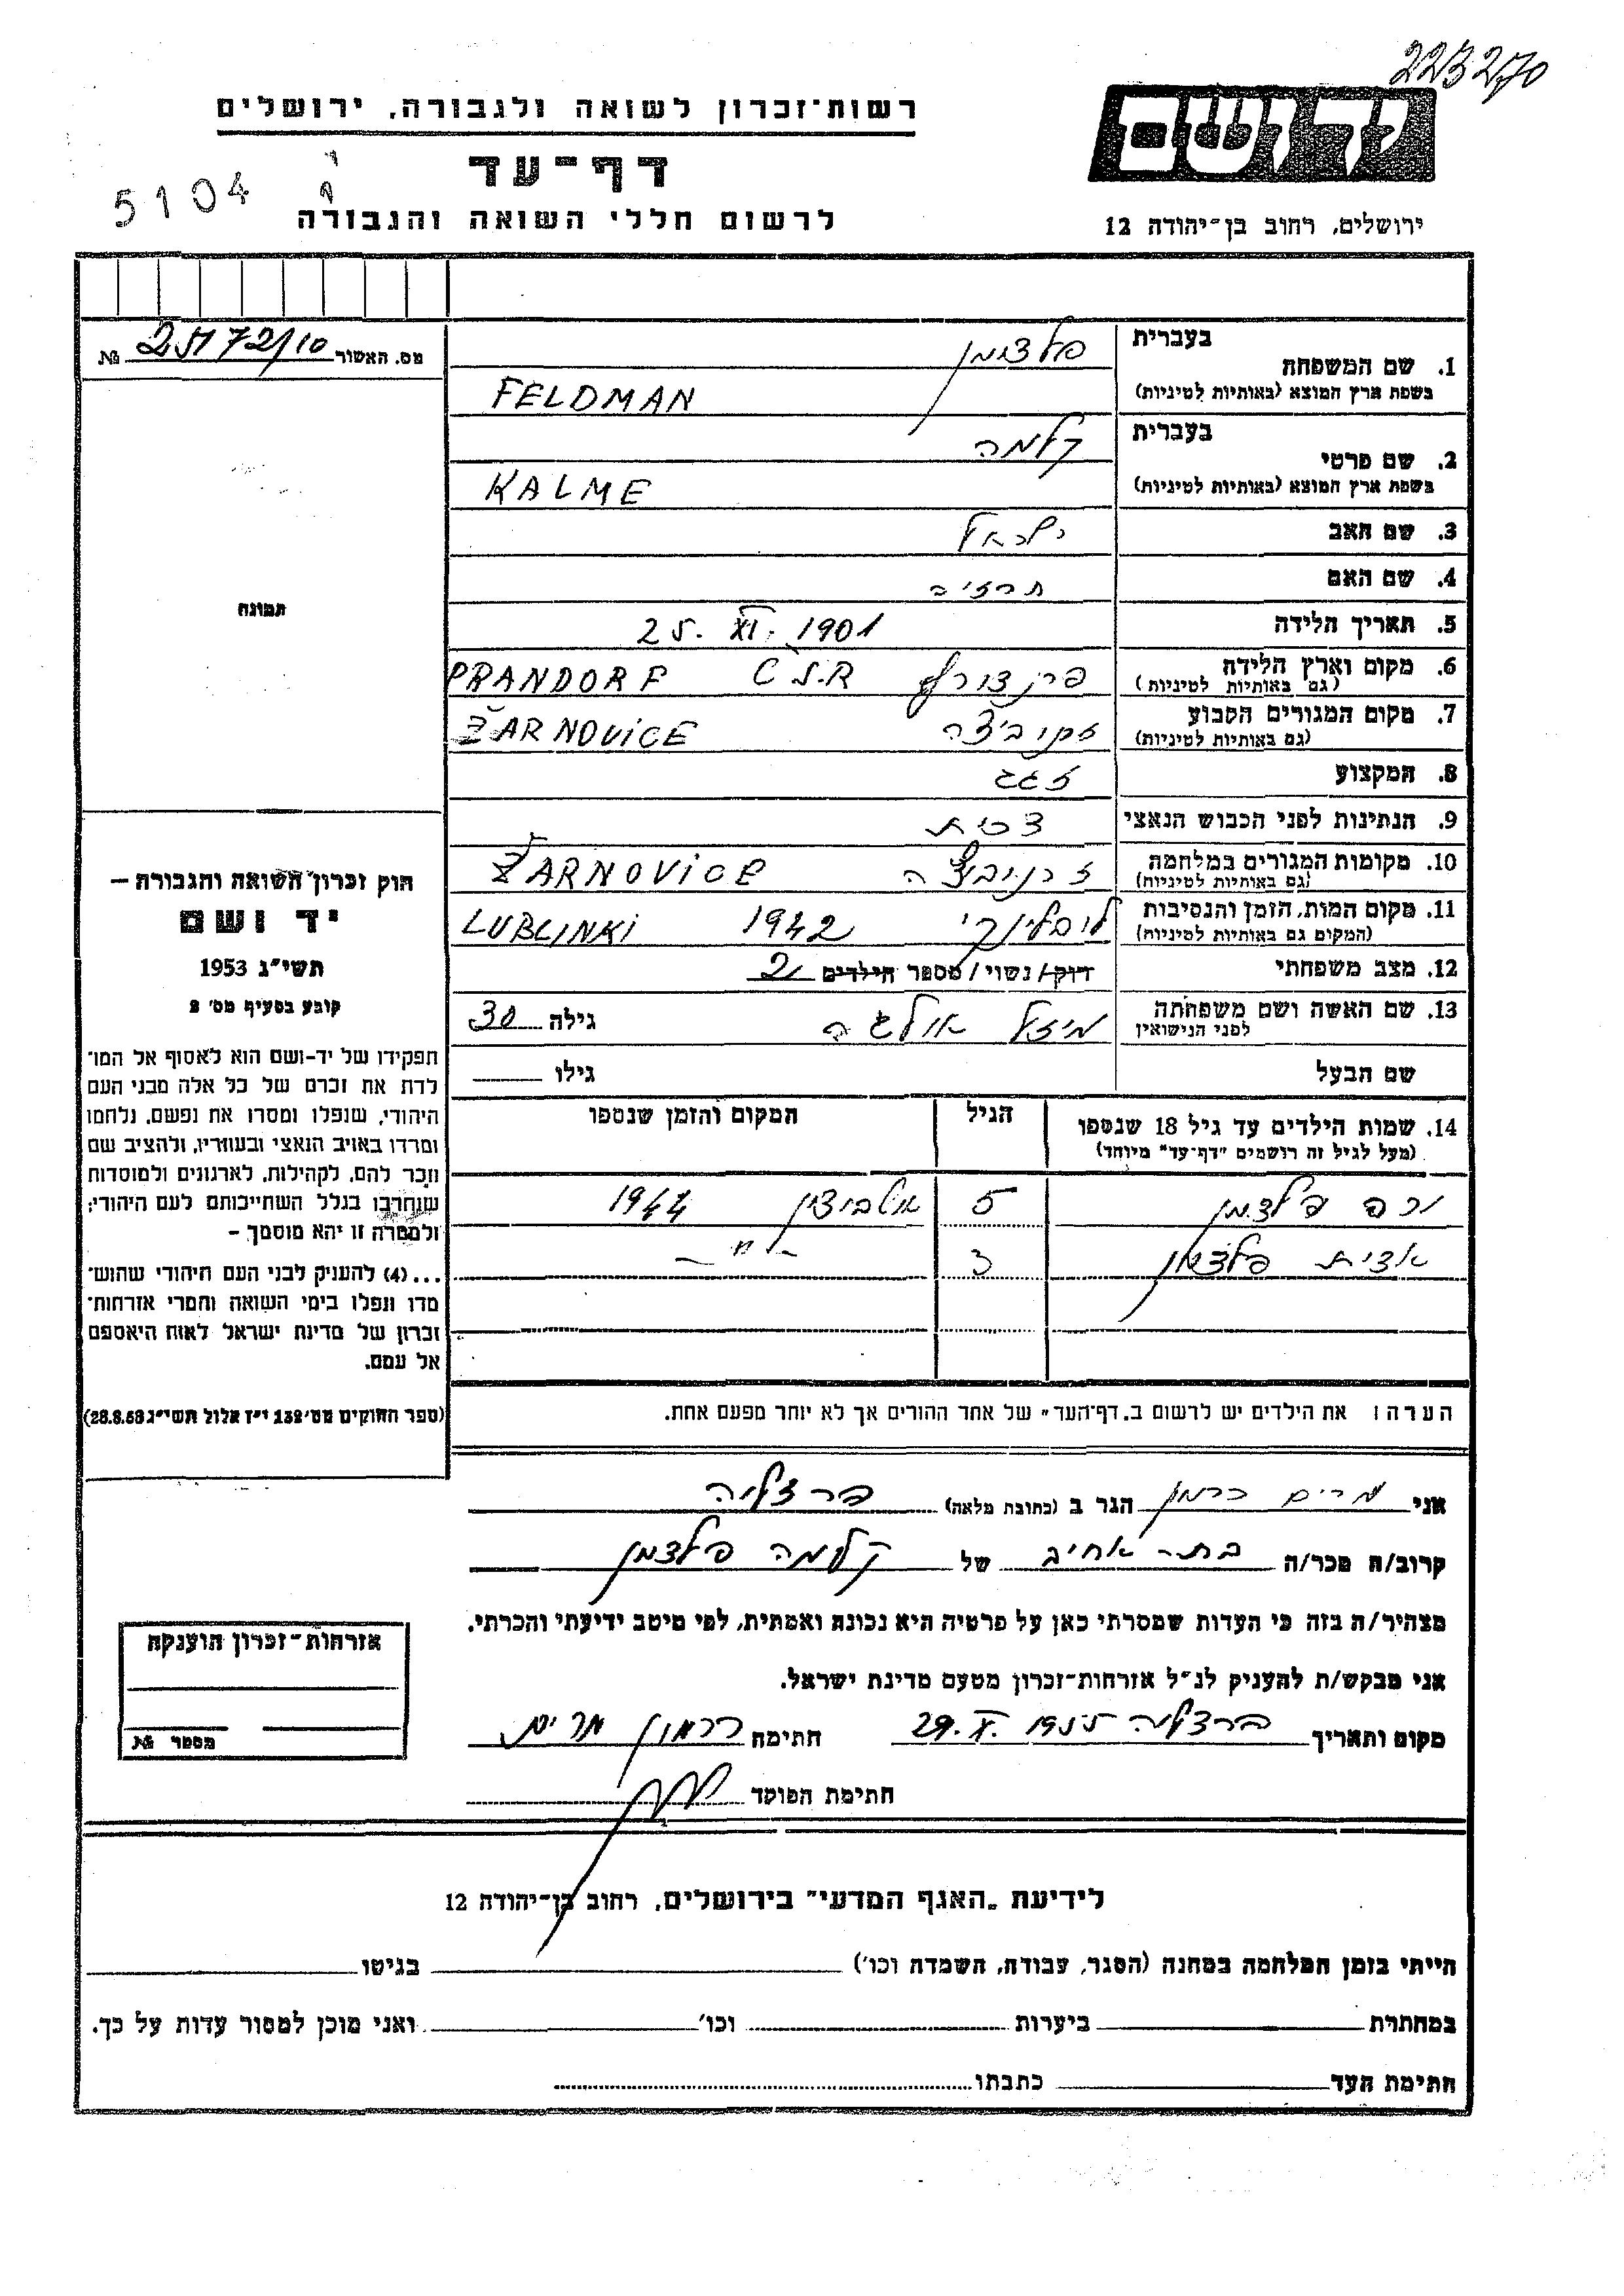 223270
רשות־זכרון לשואה ולגבורה, ירושלים
דף־עד
5104
לרשום חללי השואה והגבורה
ידושם
ירושלים, רחוב בן־יהודה 12
מס. האשור № 25172/10
תמונה
חוק זכרון השואה והגבורה —
יד ושם
תשי״ג 1953
קובע בסעיף מס׳ 2
תפקידו של יד-ושם הוא לאסוף אל המו־
לדת את זכרם של כל אלה מבני העם
היהודי, שנפלו ומסרו את נפשם, נלחמו
ומרדו באויב הנאצי ובעוזריו, ולהציב שם
וזכר להם, לקהילות, לארגונים ולמוסדות
שנחרבו בגלל השתייכותם לעם היהודי;
ולמטרה זו יהא מוסמך –
...(4) להעניק לבני העם היהודי שהוש־
מדו ונפלו בימי השואה והמרי אזרחות־
זכרון של מדינת ישראל לאות היאספם
אל עמם.
(ספר החוקים מס׳ 132 י״ז אלול תשי״ג 28.8.53)
בעברית פלדמן
1. שם המשפחה
בשפת ארץ המוצא (באותיות לטיניות) FELDMAN
בעברית קלמה
2. שם פרטי
בשפת ארץ המוצא (באותיות לטיניות) KALME
3. שם האב ישראל
4. שם האם
5. תאריך הלידה 25. XI. 1901
6. מקום וארץ הלידה פרנדורף C.S.R PRANDORF
(גם באותיות לטיניות)
7. מקום המגורים הקבוע ŽARNOVICE
(גם באותיות לטיניות)
8. המקצוע זגג
9. הנתינות לפני הכבוש הנאצי צ׳כית
10. מקומות המגורים במלחמה זרנוביצה ŽARNOVICE
(גם באותיות לטיניות)
11. מקום המות, הזמן והנסיבות לובלינקי 1942 LUBLINKI
(המקום גם באותיות לטיניות)
12. מצב משפחתי רווק/ נשוי/ מספר הילדים 2
13. שם האשה ושם משפחתה מיזל אולגה גילה 30
לפני הנישואין
שם הבעל גילו
14. שמות הילדים עד גיל 18 שנספו הגיל המקום והזמן שנספו
(מעל לגיל זה רושמים ״דף־עד״ מיוחד)
ורה פלדמן 5 אושביצין 1944
אדית פלדמן 3 -"-
הערה: את הילדים יש לרשום ב„דף־העד״ של אחד ההורים אך לא יותר מפעם אחת.
אני מרים כרמון הגר ב (כתובת מלאה) הרצליה
קרוב/ה מכר/ה בת-אחיו של קלמה פלדמן
מצהיר/ה בזה כי העדות שמסרתי כאן על פרטיה היא נכונה ואמתית, לפי מיטב ידיעתי והכרתי.
אני מבקש/ת להעניק לנ״ל אזרחות־זכרון מטעם מדינת ישראל.
מקום ותאריך הרצליה 29. X. 1955 חתימה כרמון מרים
חתימת הפוקד
אזרחות־זכרון הוענקה
מספר №
לידיעת „האגף המדעי״ בירושלים, רחוב בן־יהודה 12
הייתי בזמן המלחמה במחנה (הסגר, עבודה, השמדה וכו׳) בגיטו
במחתרת ביערות וכו׳ ואני מוכן למסור עדות על כך.
חתימת העד כתבתו